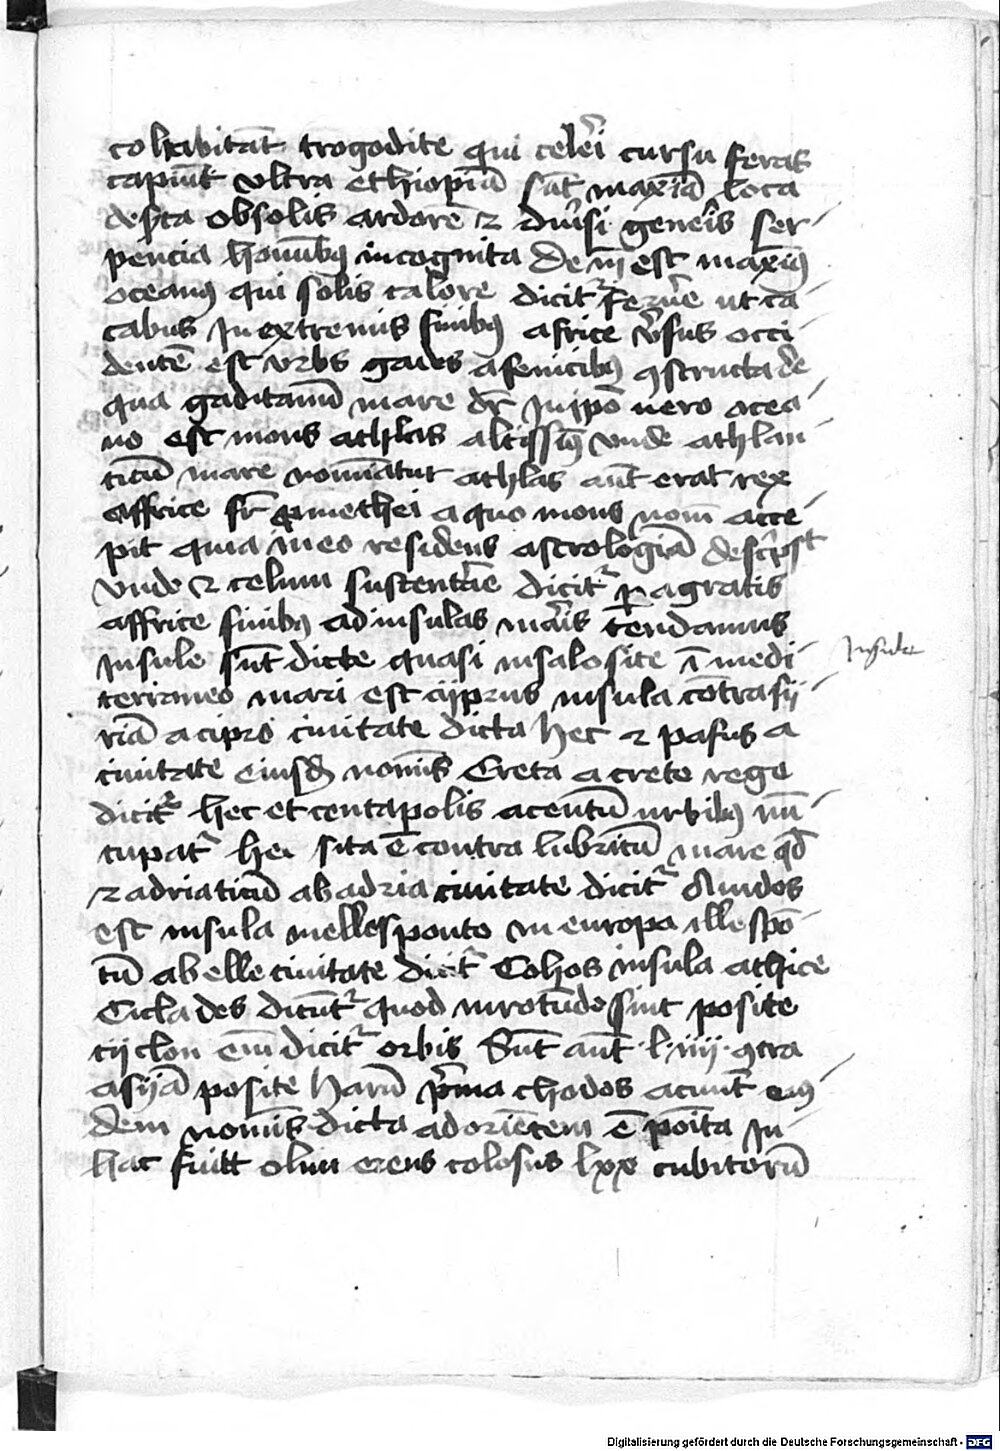 cohabitāt trogodite qui celēi cursu feras
capiūt vltra ethiopiā sūt maxīa loca
desʼta obsolis ardorē ⁊ diūsi geneis ser-
pencia hoīnibꝰ incognita Deīn est maxīꝰ
oceanꝰ qui solis calore dicitr̉ feruēe ut ca-
cabus Jn extremis finibꝫ africe v̉sus occi-
dentē est vrbs gades afenicibꝫ ꝯstructa de
qua gaditanū mare dr̄ Jn ip̄o uero ocea-
no est mons athlas altissīꝰ vnde athlan-
ticū mare nominatur athlas aūt erat rex
affrice fr̄ ꝓmethei a quo mons nom̄ acce-
pit quia in eo residens astrologiā descͥpsit
vnde ⁊ celum sustentāe dicitr̉ ꝑagratis
affrice finibꝫ ad insulas mais tendamus
Jnsule sūt dicte quasi insalo site ī medi-
terraneo mari est cyprus insula contra sy-
riā a cipro ciuitate dicta hec ⁊ pafus a
ciuitate eiusd̄ nomīs Creta a creto rege
dicitr̉ hec et centapolis acentū urbibꝫ nū-
cupatr̉ hec sita ē contra lubricū mare qd̄
⁊ adriaticū ab adria ciuitate dicitr̉ Auidos
est insula inellesponto in europa ellespō-
tū ab elle ciuitate dicitr̉ Cohos insula athice
Ciclades dicūtr̉ quod inrotūdo sint posite
cyclon em̄ dicitr̉ orbis Sūt aūt ·l·iiii· ꝯtra
asyā posite harū pͥma chodos aciuit̄ eiꝰ-
dem nomīs dicta ad oriētem ē po͞ita Jn
hac fuit olim ereus colosus lxx cubitorū
Jnsule
Digitalisierung gefördert durch die Deutsche Forschungsgemeinschaft - DFG